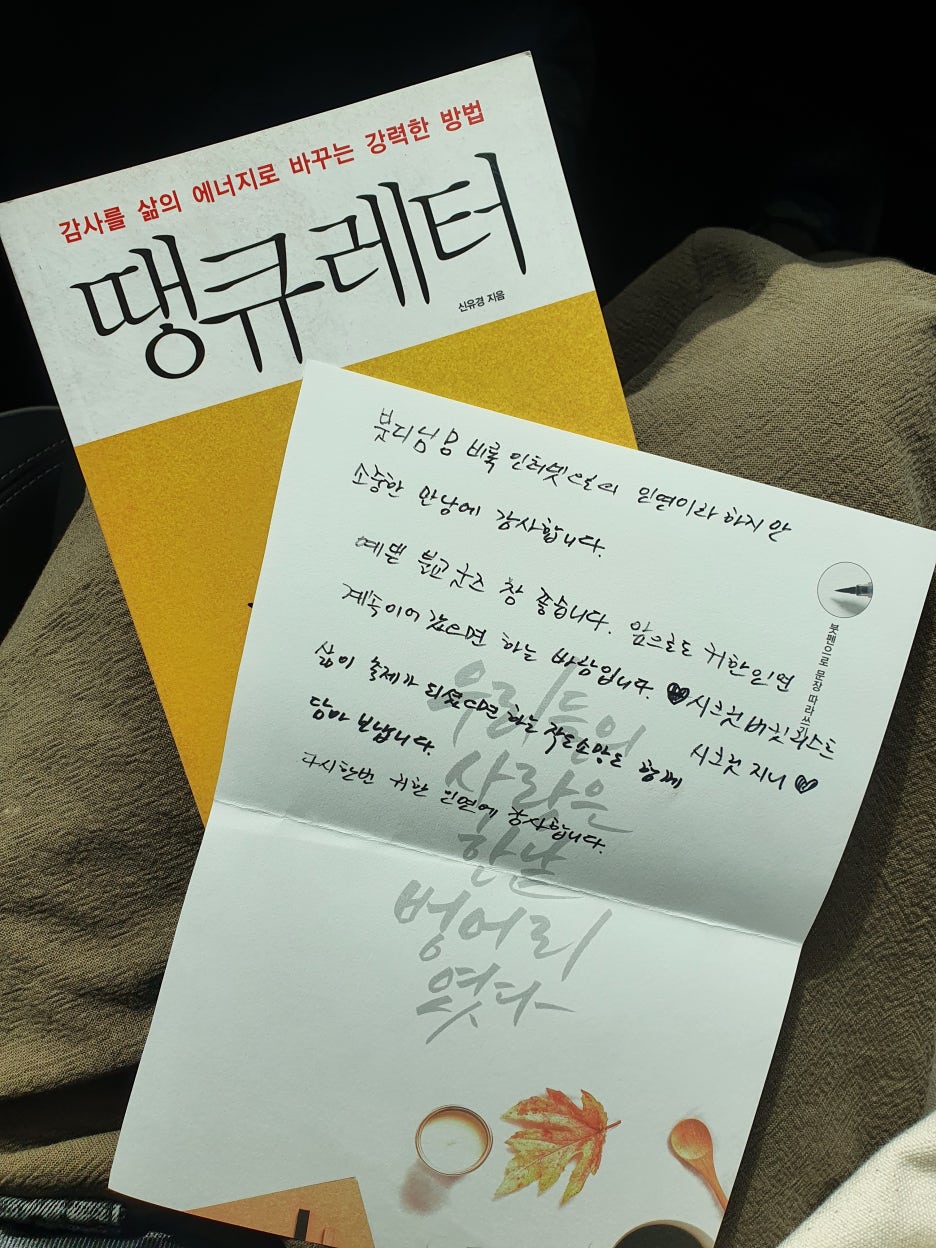 감사를 삶의 에너지로 바꾸는 강력한 방법
땡큐레터
신유경 지음
붓디님 비록 인터넷 인연이라 하지만
소중한 만남에 감사합니다.
예쁜 불교굿즈 참 좋습니다. 앞으로도 귀한 인연
계속 이어 갔으면 하는 바람입니다 ♥시크릿 버킷 리스트
삶이 축제가 되셨으면 하는 작은 소망도 함께
시크릿 지니♥
담아 보냅니다.
다시한번 귀한 인연에 감사합니다.
붓펜으로 문장 따라쓰기
우리들의
사랑은
한낱
벙어리
였다